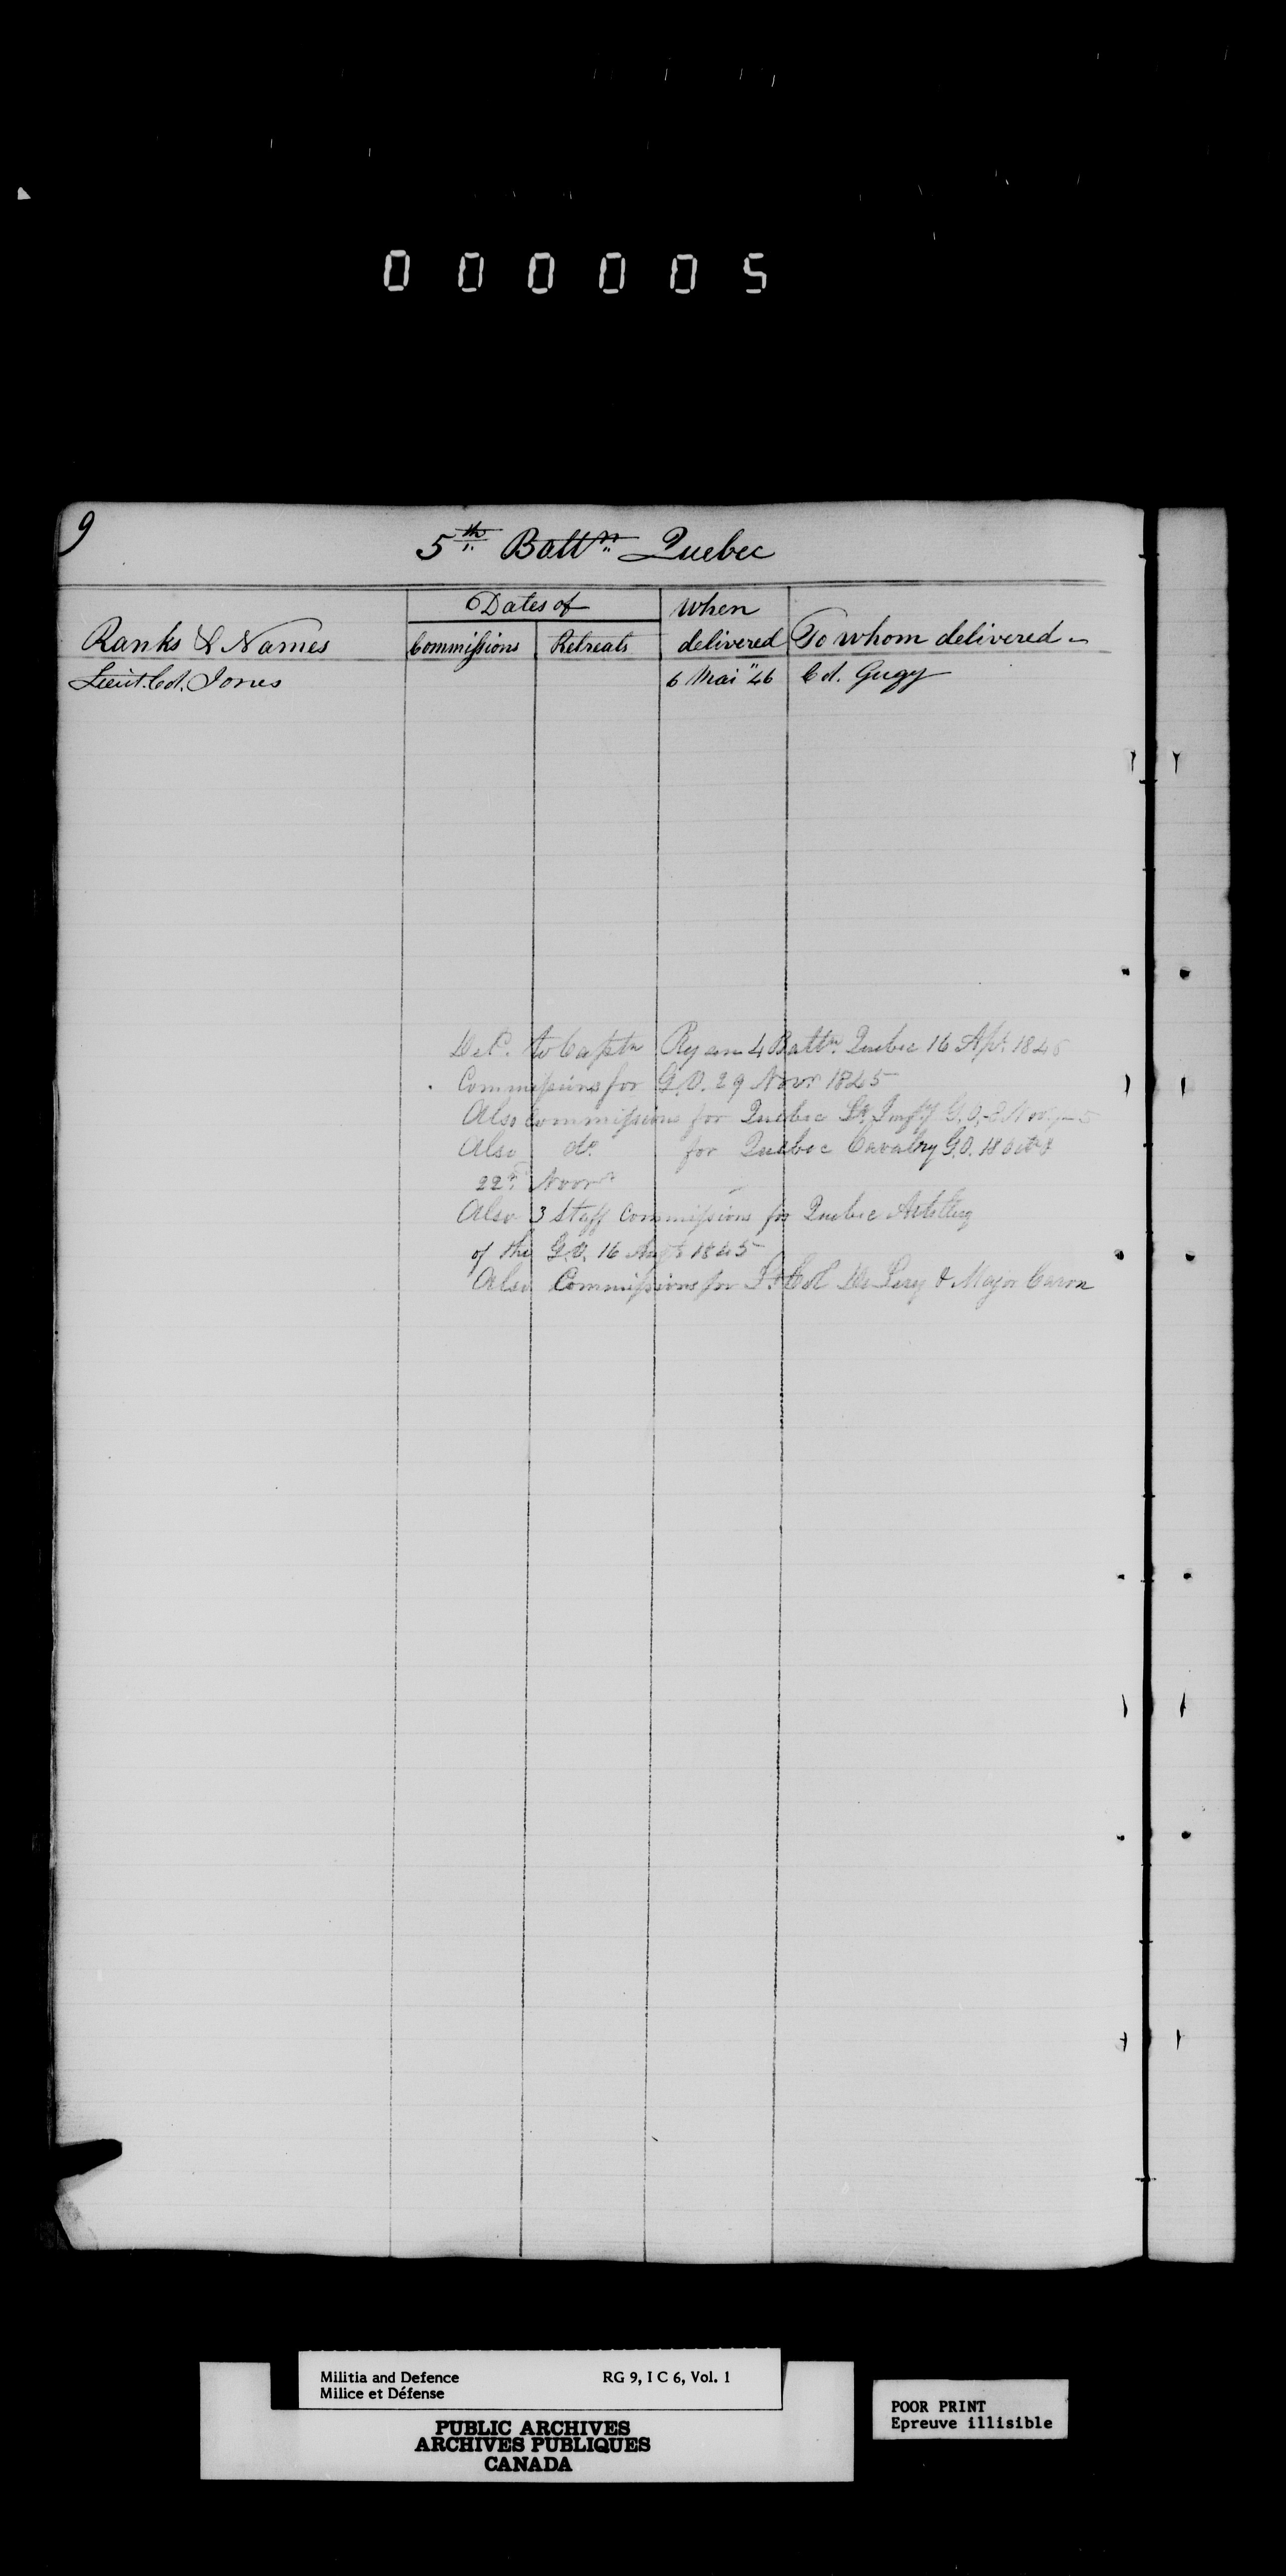 000005
9
5th Battn Quebec
Dates of When
Ranks & Names Commissions Retreats delivered To whom delivered
Lieut. Col. Jones 6 Mai "46 Col. Gugy
Deld. to Captn Ryan 4 Battn. Quebec 16 Apl. 184
Commissions for G.O. 29 Novr 1845
Also Commissions for Quebec Lt. Infy G.O.
Also do. for Quebec Cavalry G.O. 18 Octr &
22d. Novr
Also 3 Staff Commissions for Quebec Artillery
of the G.O. 16 1845
Also Commissions for Lt Col De Lery & Major Caron
Militia and Defence RG 9, I C 6, Vol. 1
Milice et Défense
PUBLIC ARCHIVES
ARCHIVES PUBLIQUES
CANADA
POOR PRINT
Epreuve illisible